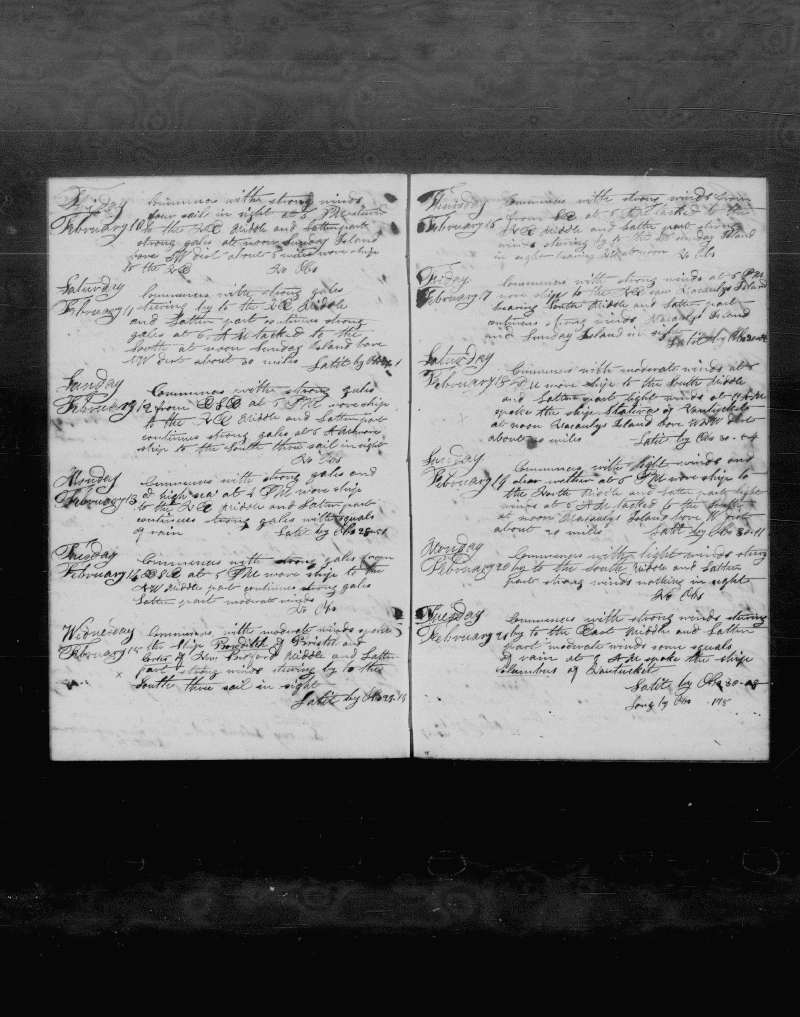 Friday Commences with strong winds
four sail in sight at 5 PM
February 10 to the NE Middle and Latter part
strong gales at noon Sunday Island
bore SW dist about 5 miles wore ship
to the NE No Obs
Saturday Commences with strong gales
steering by to the NE Middle
February 11 and Latter part continues strong
gales at 6 AM tacked to the
South at noon Sunday Island bore
NW dist about 30 miles Latit by Obs
Sunday Commences with strong gales
February 12 from ESE at 5 PM wore ship
to the NE Middle and Latter part
continues strong gales at 6 AM wore
ship to the South three sail in sight
No Obs
Monday Commences with strong gales and
February 13 a high sea at 4 PM wore ship
to the NE Middle and Latter part
continues strong gales with squals
of rain Latit by Obs 28-51
Tuesday Commences with strong gales from
February 14 ESE at 5 PM wore ship to the
NW Middle part continues strong gales
Latter part moderate winds
No Obs
Wednesday Commences with moderate winds spoke
February 15 the ship Bowditch of Bristol and
of New Bedford Middle and Latter
part strong winds steering by to the
South three sail in sight
Latit by Obs 29-19
Thursday Commences with strong winds from
February 16 from SE at 5 PM tacked to the
NE Middle and Latter part strong
winds steering by to the Sunday Island
in sight bearing at noon No Obs
Friday Commences with strong winds at 5 PM
February 17 wore ship to the NE saw Macaulys Island
bearing South Middle and Latter part
continues strong winds Macaulys Island
and Sunday Island in sight
Latit by Obs
Saturday Commences with moderate winds at 5
February 18 PM wore ship to the South Middle
and Latter part light winds at 11 AM
spoke the ship States of Nantucket
at noon Macaulys Island bore WNW dist
about 20 miles Latit by Obs 30-04
Sunday Commences with light winds and
February 19 clear wether at 6 PM wore ship to
the North Middle and Latter part light
winds at 5 AM tacked to the South
at noon Macaulys Island bore W dist
about 20 miles Latit by Obs 30-11
Monday Commences with light winds steering
February 20 by to the South Middle and Latter
part strong winds nothing in sight
No Obs
Tuesday Commences with strong winds steering
February 21 by to the East Middle and Latter
part moderate winds some squals
of rain at 7 AM spoke the ship
Columbus of Nantucket
Latit by Obs 30-28
Long by Obs 178